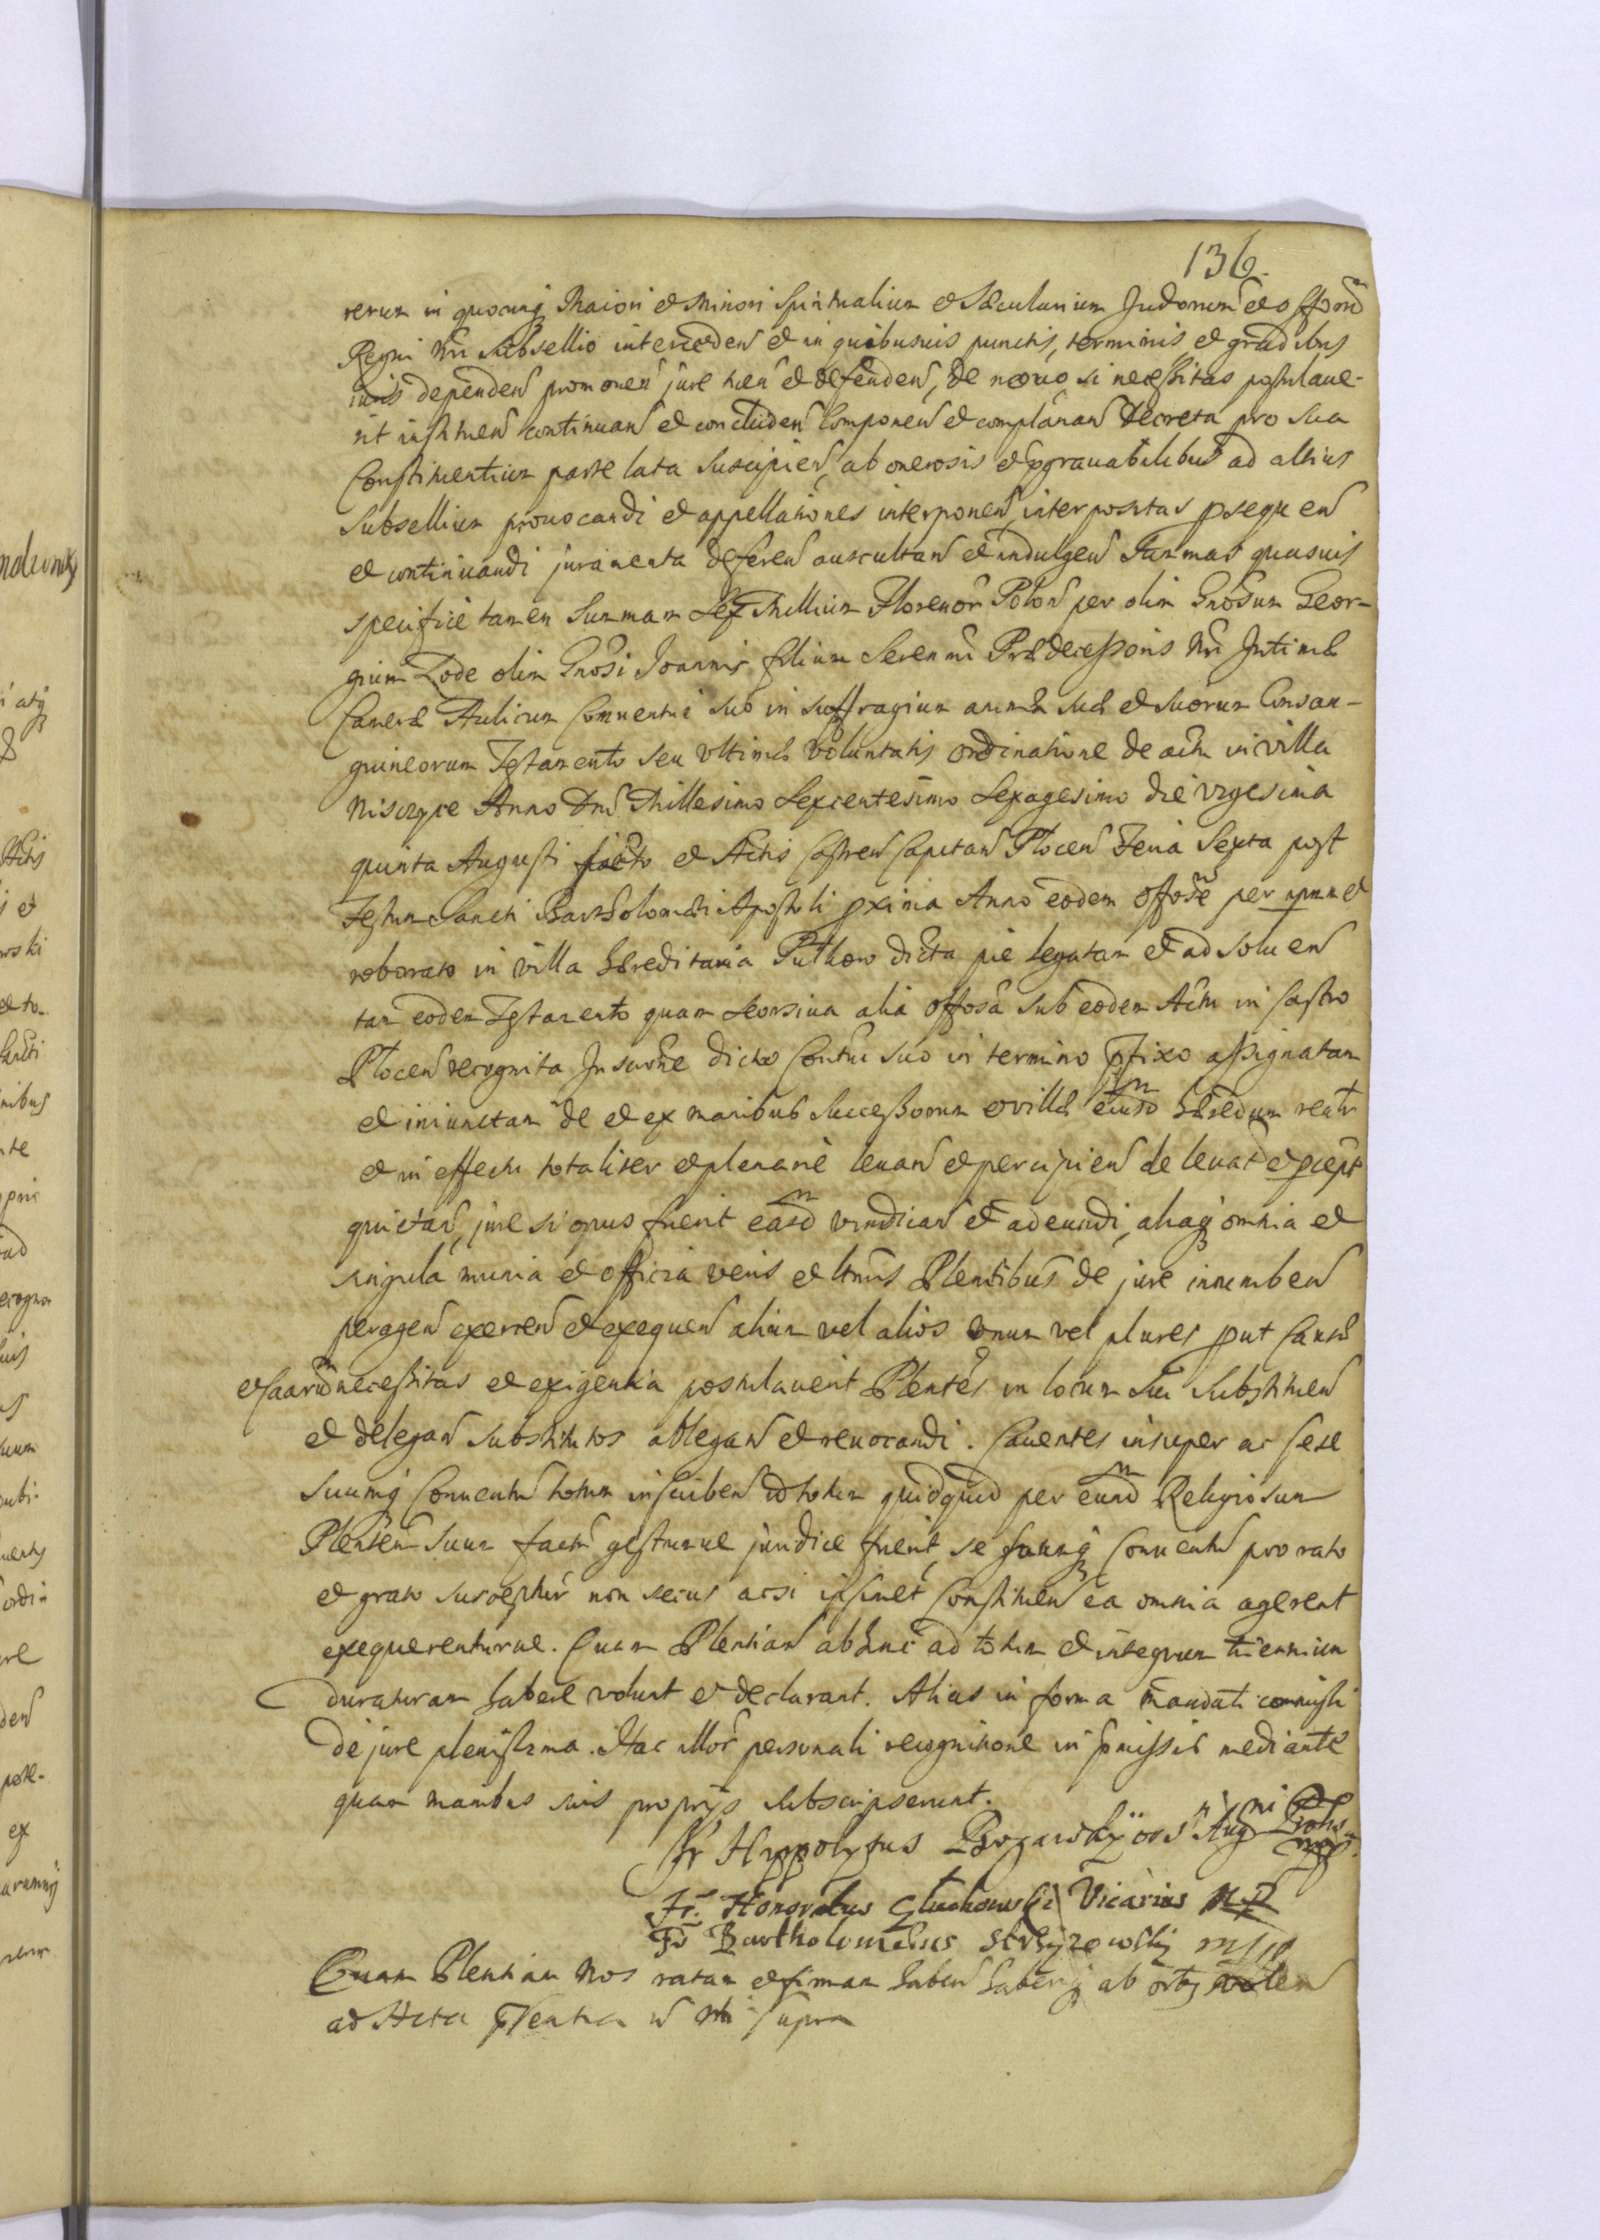 136.
rerum in quocunq Maiori et Minori Spiritualium et Sæcularium Judiorum et offiorū
Regni Nri Subsellio interceden et in quibusuis punctis, terminis et gradibus
iuris dependen promouen jure tuen et defenden, de nouo si necessitas postulaue-
rit instituen continuan et concluden componen et complanan Decreta pro sua
Constituentium parte lata suscipien, ab onerosis et pgrauabilibus ad altius
subsellium prouocandi et appellationes interponen, interpositas psequen
et continuandi juramenta deferen auscultan et indulgen Summas quasuis
specifice tamen Summam Sex Millium Florenor Polon per olim Gnosum Geor-
gium Lode olim Gnosi Joannis filium Serenmi Prædecessoris Nri Intimæ
Cameræ Aulicum Conuentui suo in suffragium animæ suæ et suorum Consan-
guineorum Testamento seu vltimæ voluntatis ordinatione de actu in villa
Anno Dni Millesimo Sexcentesimo Sexagesimo die vigesima
quinta Augusti facto et Actis Castren Capitan Plocen Feria Sexta post
Festum Sancti Bartholomæi Apostoli pxima Anno eodem per et
roborato in villa hæreditaria dicta pie legatam et ad soluen
tam eodem Testamento quam seorsiua alia sub eodem Actu in Castro
Plocen recognita Inscrone dicto Conui suo in termino pfixo assignatam
et iniunctam de et ex manibus successorum villæ eiusd hæredum
et in effectu totaliter et plenarie leuan et percipien de leuat et pcept
quietan, jure si opus fuerit easd vindican et adeundi, aliaq omnia et
singula munia et officia veris et ltmis Plentibus de jure incumben
peragen exercen et exequen alium vel alios vnum vel plures put Causæ
et caarūd necessitas et exigentia postulauerit Plentes in locum sui substituen
et delegan substitutos ablegan et reuocandi. Cauentes insuper ac sese
suumq Conuentu totum inscriben id totum quidquid per eund Religiosum
Plenten suum factu gestumue juridice fuerit, se suumq Conuentu pro rato
et grato suscepturu non secus acsi ipsimet Constituen ea omnia agerent
exequerenturue. Quam Plentiam abhinc ad totum et integrum trienniun
duraturam habere volunt et declarant. Alias in forma mandati commissi
de jure plenissima. Hac illor personali recognitione in pmissis mediante
quam manibus suis proprijs subscripserunt.
Fr Hyppolytus
Fr. Honoratus Gluchowski Vicarius M P
Fr Bartholomæus mp
Quam Plentiam Nos ratam et firmam haben haberiq ab oibus volen
ad Acta pntia supra